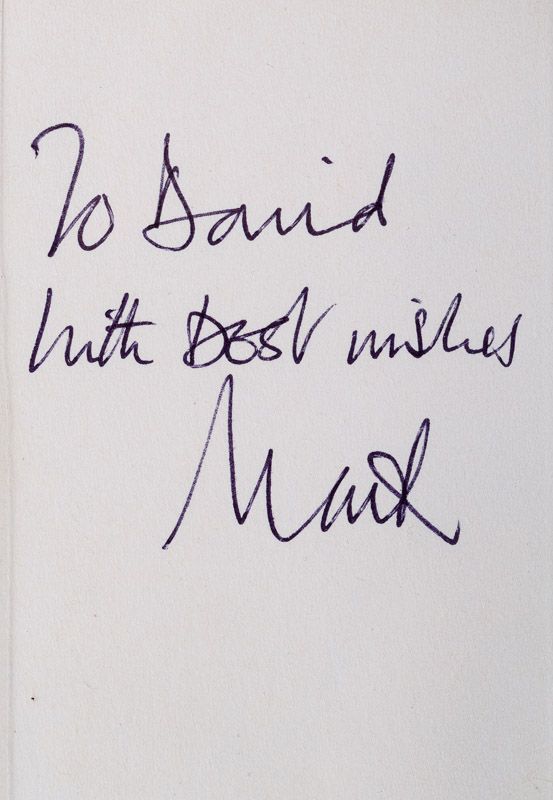 To David
With Best wishes
Mark